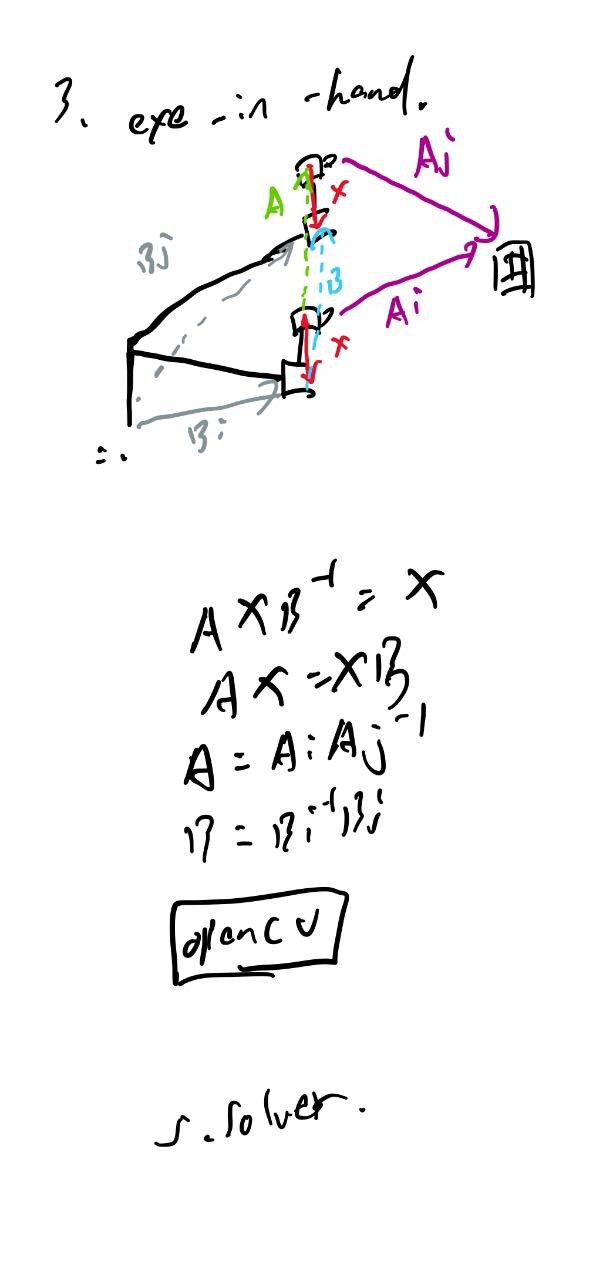 3. eye-in-hand.
Aj
A X
Bj
B
Ai
X
Bi
A X B⁻¹ = X
A X = X B
A = Ai Aj⁻¹
B = Bi⁻¹ Bj
opencv
5. solver.